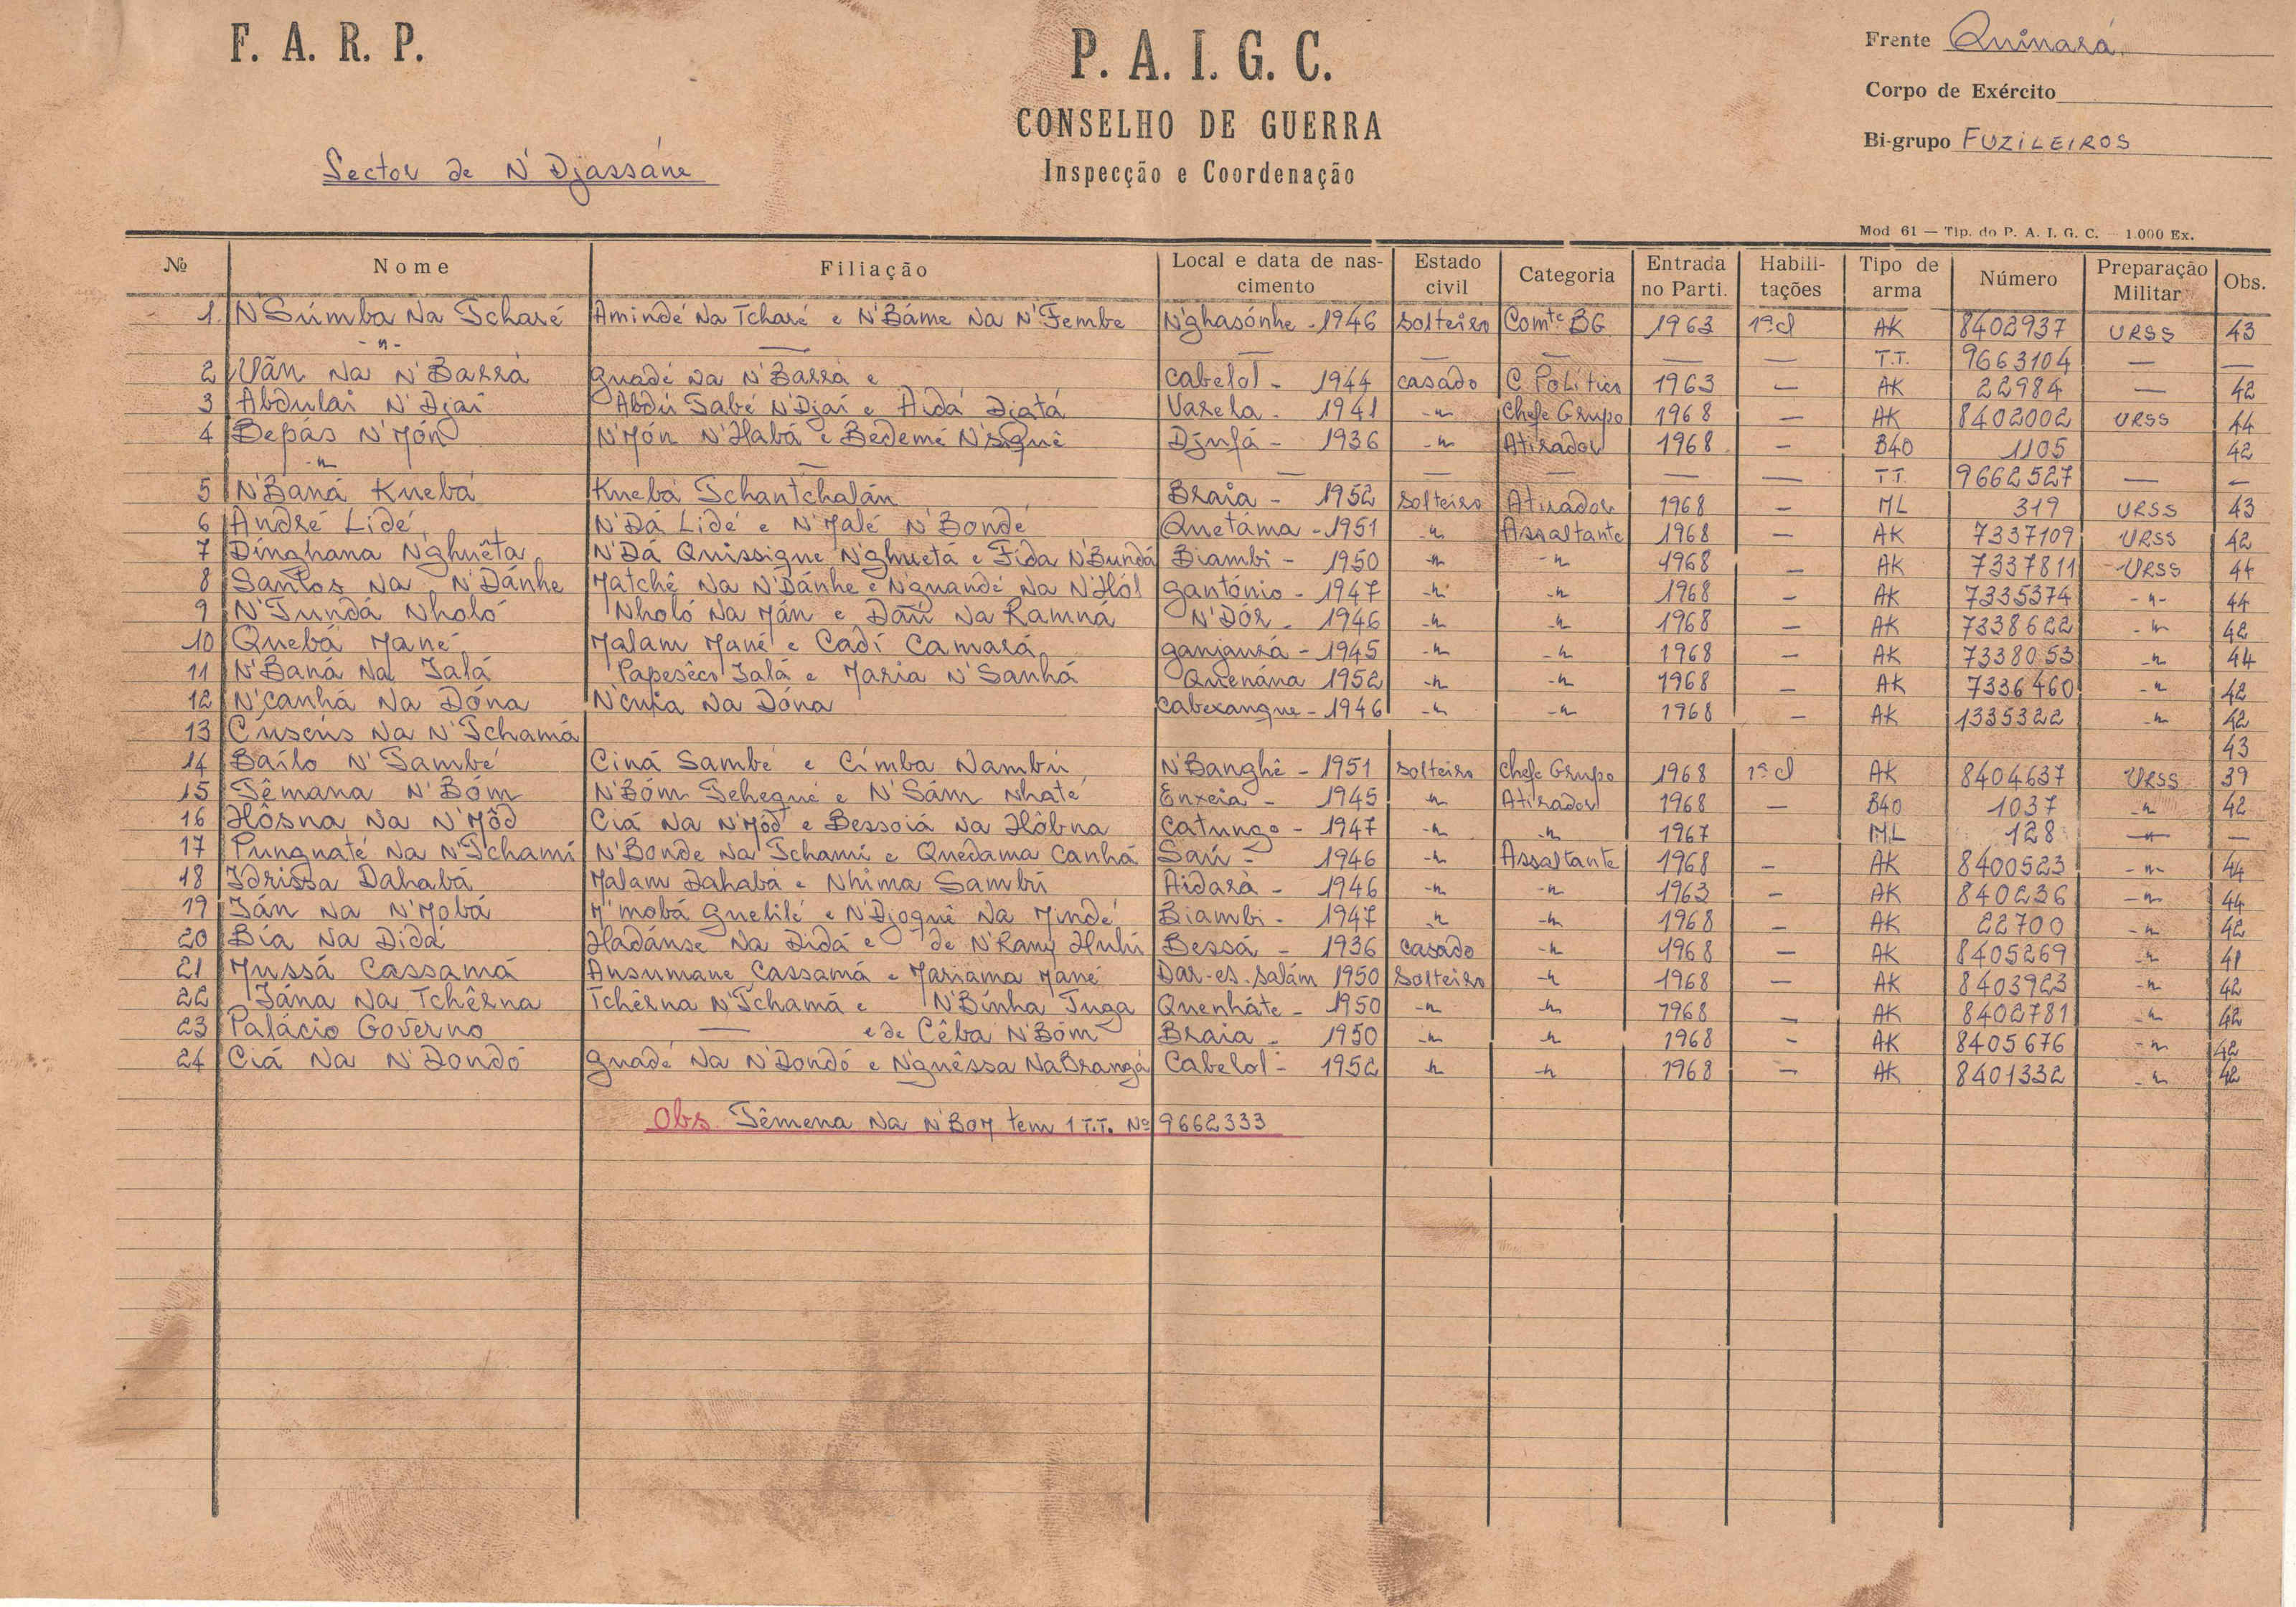 F. A. R. P.
P. A. I. G. C.
CONSELHO DE GUERRA
Inspecção e Coordenação
Sector de N'Djassáne
Frente Quinará
Corpo de Exército
Bi-grupo FUZILEIROS
Mod 61 — Tip. do P. A. I. G. C. — 1.000 Ex.
Nº Nome Filiação Local e data de nascimento Estado civil Categoria Entrada no Parti. Habilitações Tipo de arma Número Preparação Militar Obs.
1 N'Súmba Na Tcharé Amindé Na Tcharé e N'Báme Na N'Fembe N'ghasónhe - 1946 solteiro Comte BG 1963 1ª cl AK 8402937 URSS 43
-"- — — — — — — T.T. 9663104 — —
2 Vãn Na N'Barrá guadé Na N'Barra e Cabelol - 1944 casado C. Político 1963 — AK 22984 — 42
3 Abdulai N'Djai Abdú Sabé N'Djaí e Aidá Djatá Varela - 1941 -"- Chefe Grupo 1968 — AK 8402002 URSS 44
4 Bepás N'Món N'Món N'Habá e Bedemé N'siguê Djufá - 1936 -"- Atirador 1968 — B40 1105 42
-"- — — — — — — T.T. 9662527 — —
5 N'Baná Knebá Knebá Tchantchalán Braia - 1952 solteiro Atirador 1968 — ML 319 URSS 43
6 André Lidé N'Dá Lidé e N'Malé N'Bondé Quetáma - 1951 -"- Assaltante 1968 — AK 7337109 URSS 42
7 Dinghana N'ghuêta N'Dá Quissigue N'ghuetá e Fida N'Bundá Biambi - 1950 -"- -"- 1968 — AK 7337811 URSS 44
8 Santos Na N'Dánhe Matchê Na N'Dánhe e N'guandé Na N'Hól gantónio - 1947 -"- -"- 1968 — AK 7335374 -"- 44
9 N'Tundá Nholó Nholó Na Mán e Daú Na Ramná N'Dór - 1946 -"- -"- 1968 — AK 7338622 -"- 42
10 Quebá Mané Malam Mané e Cadí Camará ganjaurá - 1945 -"- -"- 1968 — AK 7338053 -"- 44
11 N'Baná Na Ialá Papesêco Ialá e Maria N'Sanhá Quenána 1952 -"- -"- 1968 — AK 7336460 -"- 42
12 N'canhá Na Dóna N'cuia Na Dóna Cabexangue - 1946 -"- -"- 1968 — AK 1335322 -"- 42
13 Cúséus Na N'Tchamá 43
14 Baílo N'Sambé Ciná Sambé e Címba Nambú N'Banghê - 1951 solteiro Chefe Grupo 1968 1ª cl AK 8404637 URSS 39
15 Têmana N'Bóm N'Bóm Tchegué e N'Sám Nhaté Enxeia - 1945 -"- Atirador 1968 — B40 1037 -"- 42
16 Hôsna Na N'Môd Ciá Na N'Môd e Bessoiá Na Hôbna Catungo - 1947 -"- -"- 1967 ML 128 -"- —
17 Pungnaté Na N'Tchamí N'Bonde Na Tchamí e Quedama Canhá Saú - 1946 -"- Assaltante 1968 — AK 8400523 -"- 44
18 Idrissa Dahabá Malam Dahabá e Nhima Sambú Aidará - 1946 -"- -"- 1963 — AK 840236 -"- 44
19 Ián Na N'Mobá M'mobá guelilé e N'Djoguê Na Mindé Biambi - 1947 -"- -"- 1968 — AK 22700 -"- 42
20 Bía Na Didá Hadánse Na Didá e de N'Ramy Hulú Bessá - 1936 casado -"- 1968 — AK 8405269 -"- 41
21 Mussá Cassamá Ansumane Cassamá e Mariama Mané Dar-es-salám 1950 solteiro -"- 1968 — AK 8403923 -"- 42
22 Iána Na Tchêrna Tchêrna N'Tchamá e N'Bínha Tuga Quenháte - 1950 -"- -"- 1968 — AK 8402781 -"- 42
23 Palácio Governo — e de Cêba N'Bóm Braia - 1950 -"- -"- 1968 — AK 8405676 -"- 42
24 Ciá Na N'Dondó guadé Na N'Dondó e N'guêssa Na Brangá Cabelol - 1952 -"- -"- 1968 — AK 8401332 -"- 42
Obs Têmena Na N'Bom tem 1 T.T. Nº 9662333